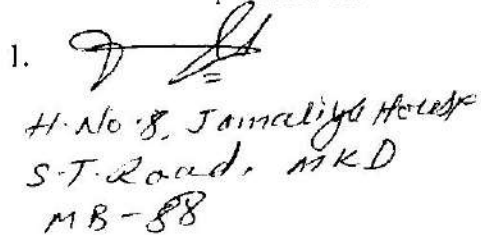 1.
H. No. 8, Jamaliya House
S.T. Road, MKD
MB - 88